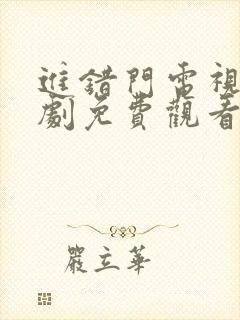 進錯門電視
劇免費觀看
嚴立華